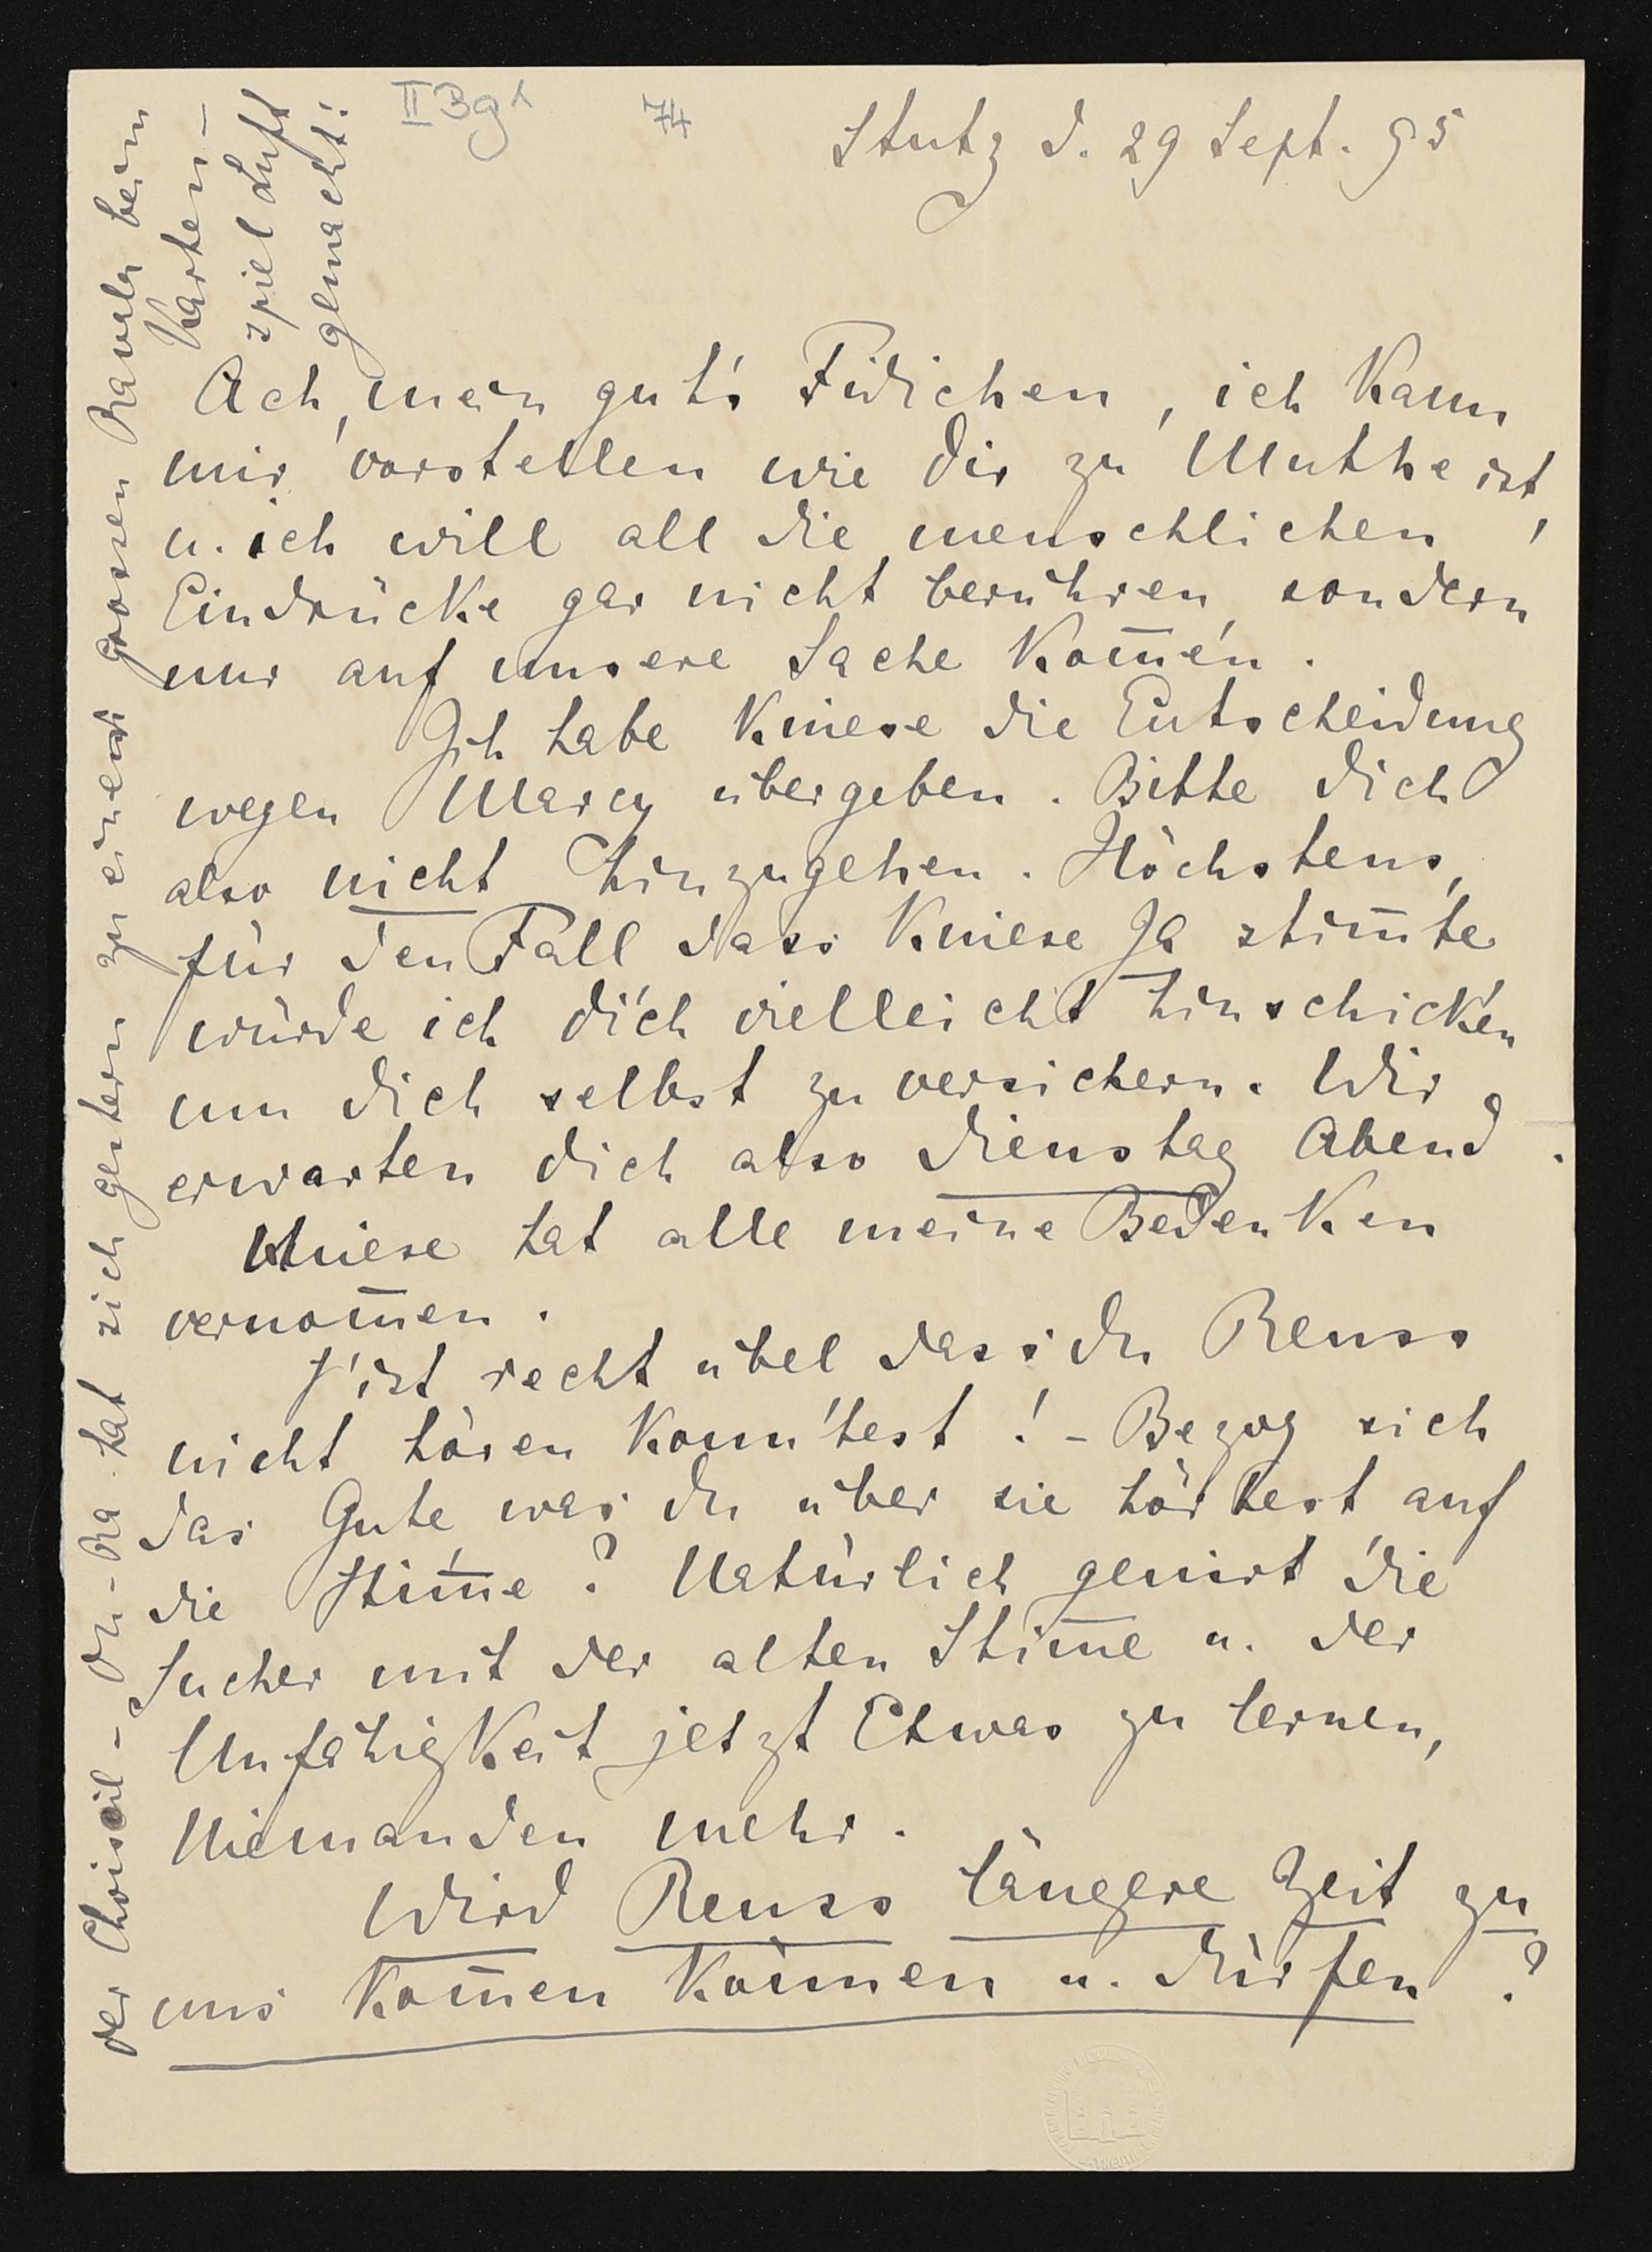 II Bg 1
74
Stutz d. 29 Sept. 95
Ach, mein gut's Fidichen, ich kann
mir vorstellen wie dir zu Muthe ist,
u. ich will all die menschlichen
Eindrücke gar nicht berühren, sondern
nur auf unsere Sache kom̄en.
Ich habe Kniese die Entscheidung
wegen Marcy übergeben. Bitte dich
also nicht hinzugehen. Höchstens,
für den Fall dass Kniese Ja stim̄te
würde ich dich vielleicht hinschicken
um dich selbst zu versichern. Wir
erwarten dich also Dienstag Abend.
Kniese hat alle meine Bedenken
vernom̄en.
S'ist recht übel dass du Reuss
nicht hören konntest! - Bezog sich
das Gute, was du über sie hörtest auf
die Stim̄e? Natürlich genirt die
Sucher mit der alten Stim̄e u. der
Unfähigkeit jetzt Etwas zu lernen,
Niemanden mehr.
Wird Reuss längere Zeit zu
uns kom̄en können u. dürfen?
der Choiseul - Du - Ba hat sich gestern zu einem grossen Rawula beim
Karten-
spiel Luft
gemacht!